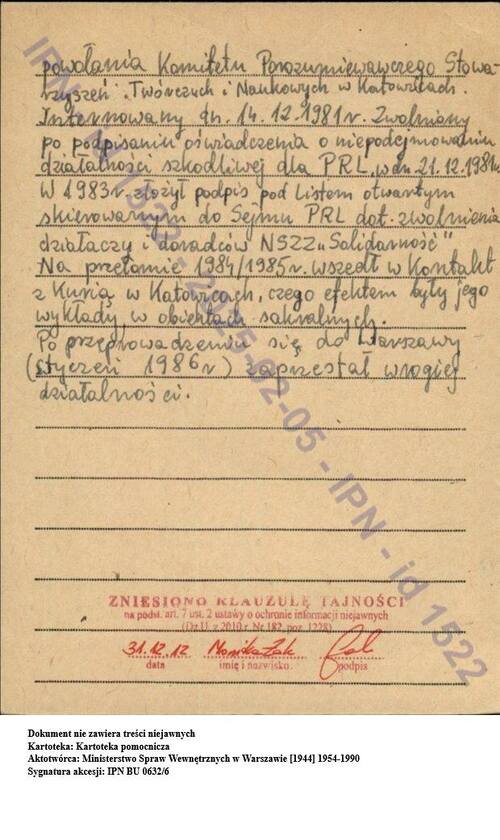 powołania Komitetu Porozumiewawczego Stowa-
rzyszeń Twórczych i Naukowych w Katowicach.
Internowany dn. 14.12.1981r. Zwolniony
po podpisaniu oświadczenia o niepodejmowaniu
działalności szkodliwej dla PRL, w dn. 21.12.1981r.
W 1983r. złożył podpis pod Listem otwartym
skierowanym do Sejmu PRL dot. zwolnienia
działaczy i doradców NSZZ „Solidarność"
Na przełomie 1984/1985r. wszedł w kontakt
z Kurią w Katowicach, czego efektem były jego
wykłady w obiektach sakralnych.
Po przeprowadzeniu się do Warszawy
(styczeń 1986r) zaprzestał wrogiej
działalności.
ZNIESIONO KLAUZULĘ TAJNOŚCI
na podst. art. 7 ust. 2 ustawy o ochronie informacji niejawnych
(Dz.U. z 2010 r. Nr 182, poz. 1228)
31.12.12 Monika Żak
data imię i nazwisko podpis
IPN - id 1522
Dokument nie zawiera treści niejawnych
Kartoteka: Kartoteka pomocnicza
Aktotwórca: Ministerstwo Spraw Wewnętrznych w Warszawie [1944] 1954-1990
Sygnatura akcesji: IPN BU 0632/6